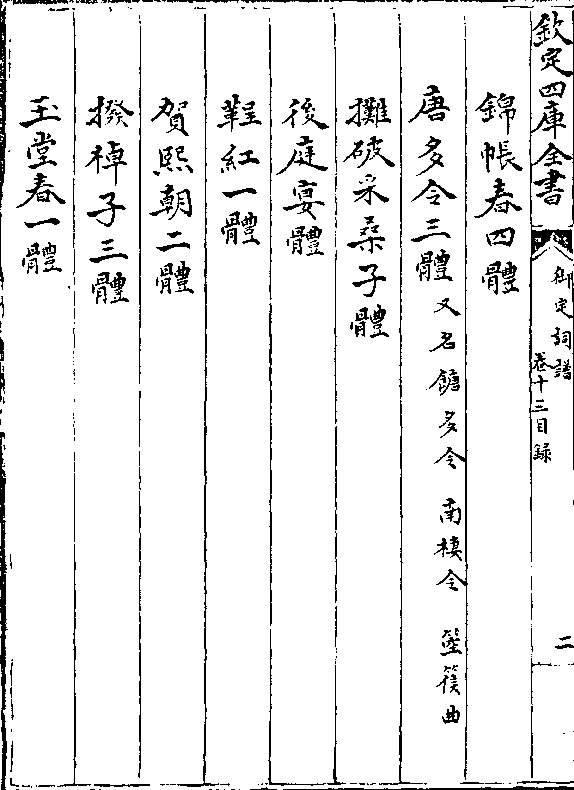 欽定四庫全書
御定詞譜
卷十三目錄
二
錦帳春四體
唐多令三體 又名餹多令 南樓令 箜篌曲
攤破采桑子體
後庭宴體
鞓紅一體
賀熙朝二體
撥棹子三體
玉堂春一體